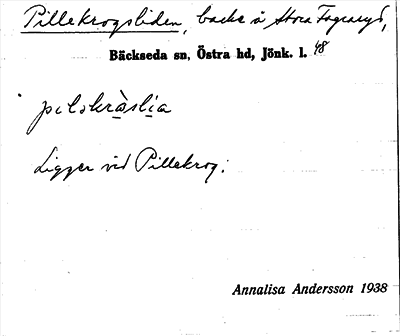 Pillekrogsliden, backe å Stora Fagraryd,
Bäckseda sn, Östra hd, Jönk. l. 48
pelakràslia
Ligger vid Pillekrog.
Annalisa Andersson 1938